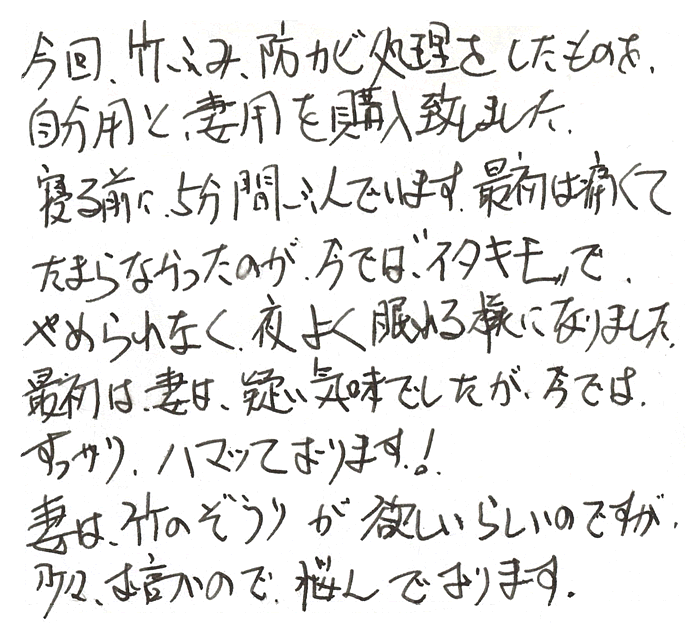 今回、竹ふみ、防カビ処理をしたものを、
自分用と、妻用を購入致しました。
寝る前に、5分間ふんでいます。最初は痛くて
たまらなかったのが、今では、"イタキモ"で、
やめられなく、夜よく眠れる様になりました。
最初は、妻は、疑い気味でしたが、今では、
すっかり、ハマッております!
妻は、竹のぞうりが欲しいらしいのですが、
少々、お高いので、悩んでおります。